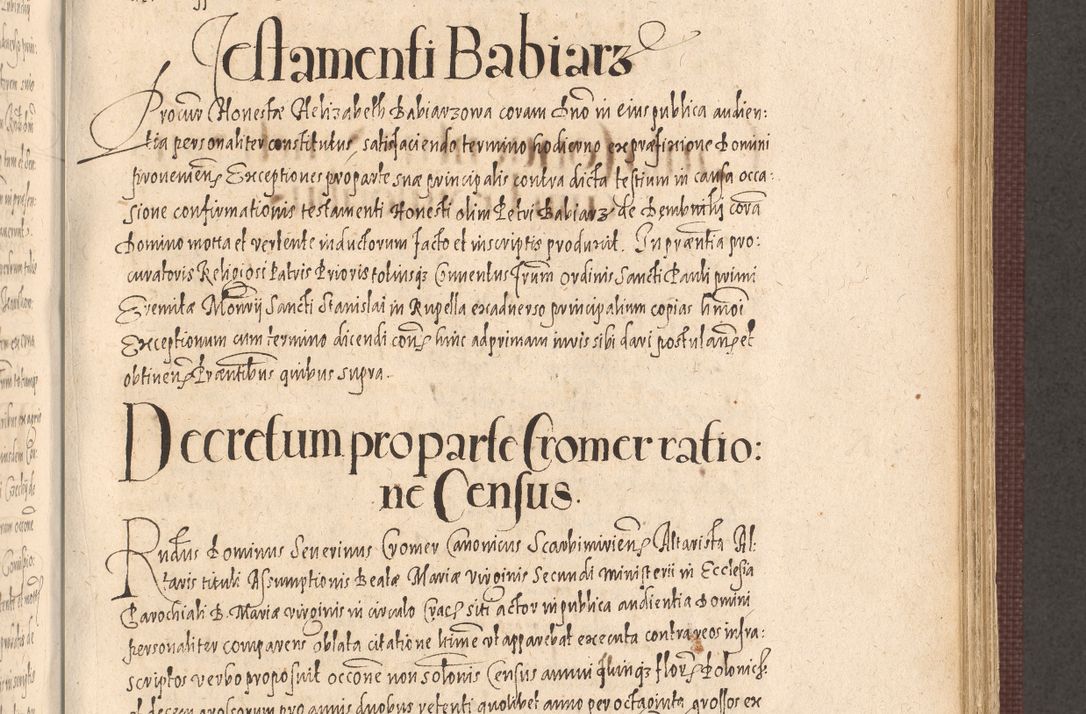 Testamenti Babiarz
Procur Honestæ Helizabeth Babiarzowa coram Dno in eius publica audien:
tia personaliter constitutus, satisfaciendo termino hodierno ex præfixione Domini
provenien Exceptiones pro parte suæ principalis contra dicta testium in causa occa:
sione confirmationis testamenti Honesti olim Petri Babiarz de Dembniki corã
Domino mota et vertente inductorum facto et in scriptis produxit. In præntia pro:
curatoris Religiosi Patris Prioris totiusq Conventus frum Ordinis Sancti Pauli primi
Eremitæ Monrij Sancti Stanislai in Rupella ex adverso principalium copias hmoi
Exceptionum cum termino dicendi con hinc ad primam iuris sibi dari postulan et
obtinen Præntibus quibus supra.
Decretum pro parte Cromer ratio:
ne Census.
Rndus Dominus Severinus Cromer Canonicus Scarbimirien Altarista Al:
taris tituli Assumptionis Beatæ Mariæ virginis Secundi ministerii in Ecclesia
Parochiali B. Mariæ virginis in circulo Crac siti actor in publica audientia Domini
personaliter comparens oblata citatione hmine ut apparebat executa contra reos infra:
scriptos verbo proposuit occone non solonis Census annui quinq flor Polonich
et decem grossorum pro annis duobus retenti quolibet anno per octoginta grossos ex